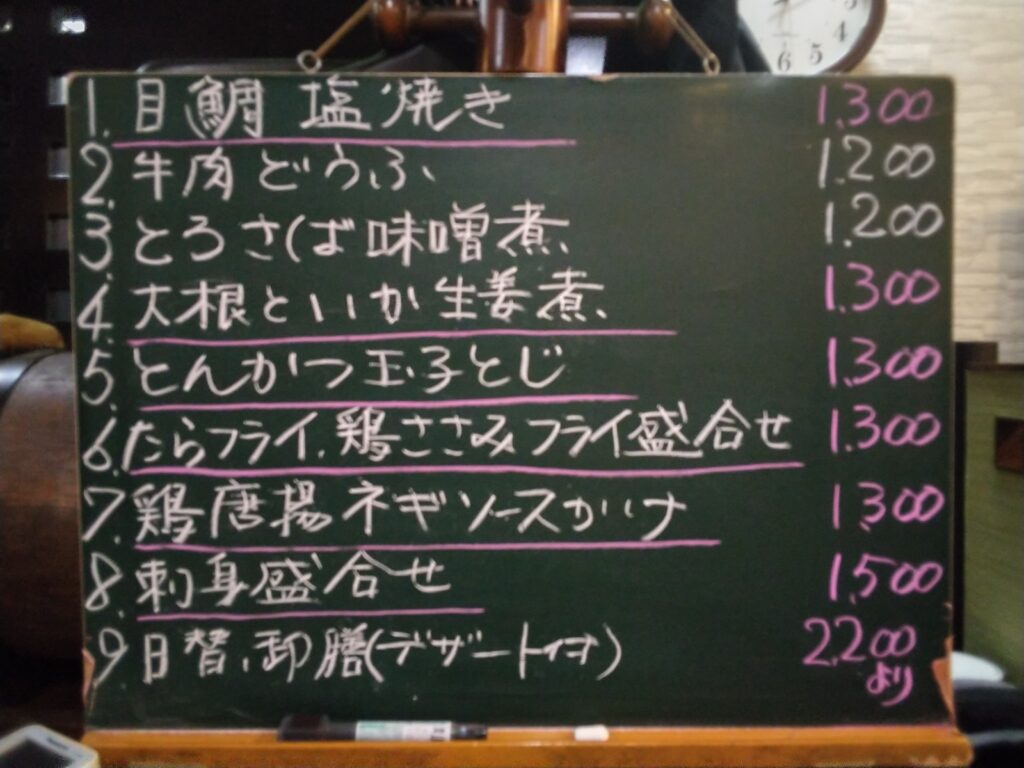 1.目鯛 塩焼き 1.300
2. 牛肉どうふ 1.200
3. とろさば味噌煮 1.200
4. 大根といか生姜煮 1.300
5. とんかつ玉子とじ 1.300
6. たらフライ、鶏ささみフライ盛合せ 1.300
7. 鶏唐揚ネギソースかけ 1.300
8. 刺身盛合せ 1.500
9 日替、御膳(デザート付) 2.200
より
5
6